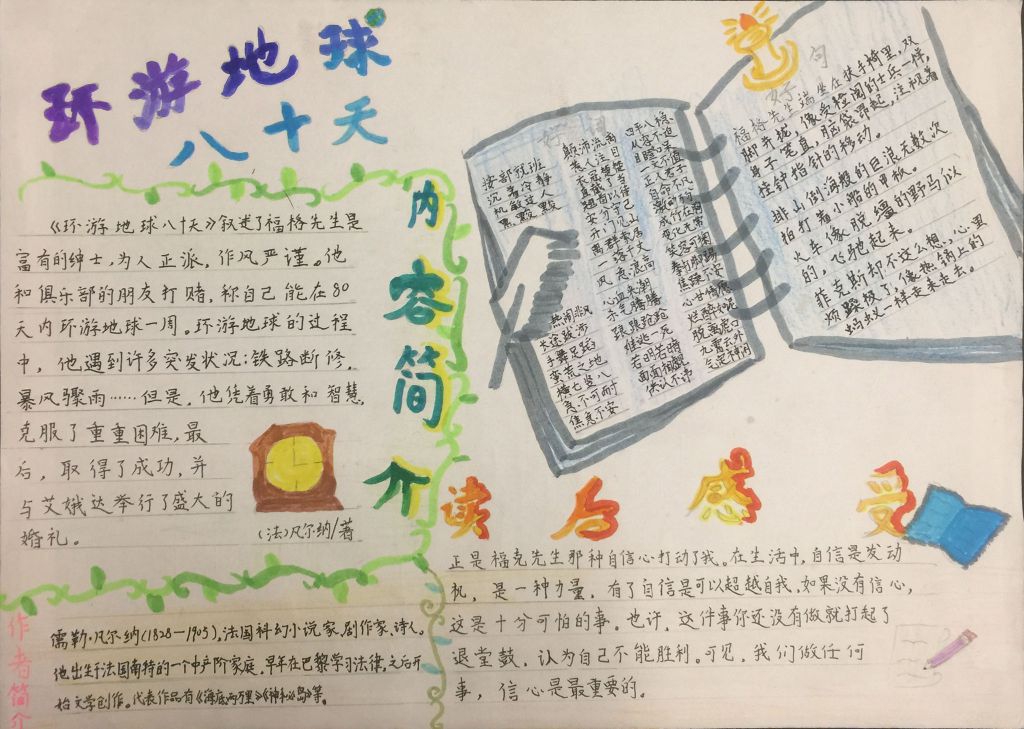 环游地球
八十天
内容简介
《环游地球八十天》叙述了福格先生是
富有的绅士,为人正派,作风严谨。他
和俱乐部的朋友打赌,称自己能在80
天内环游地球一周。环游地球的过程
中,他遇到许多突发状况:铁路断修,
暴风骤雨……但是,他凭着勇敢和智慧,
克服了重重困难,最
后,取得了成功,并
与艾娥达举行了盛大的
婚礼。
(法)凡尔纳/著
作者简介
儒勒·凡尔纳(1828—1905),法国科幻小说家、剧作家、诗人。
他出生于法国南特的一个中产阶家庭,早年在巴黎学习法律,之后开
始文学创作。代表作品有《海底两万里》《神秘岛》等。
好词
按部就班
沉着冷静
机敏过人
热闹非凡
长途跋涉
手舞足蹈
蛮荒之地
横七竖八
急不可耐
焦急不安
心血来潮
杀气腾腾
踉踉跄跄
若明若暗
面面相觑
心甘情愿
九霄云外
好句
福格先生端坐在扶手椅里,双
脚并拢,像受检阅的士兵一样,
身子笔直,脑袋昂起,注视着
挂钟指针的移动。
排山倒海般的巨浪无数次
拍打着小船的甲板。
火车像脱缰的野马似
的,飞驰起来。
菲克斯却不这么想,心里
烦躁极了,像热锅上的
蚂蚁一样走来走去。
读后感受
正是福克先生那种自信心打动了我。在生活中,自信是发动
机,是一种力量,有了自信是可以超越自我,如果没有信心,
这是十分可怕的事。也许,这件事你还没有做就打起了
退堂鼓,认为自己不能胜利。可见,我们做任何
事,信心是最重要的。